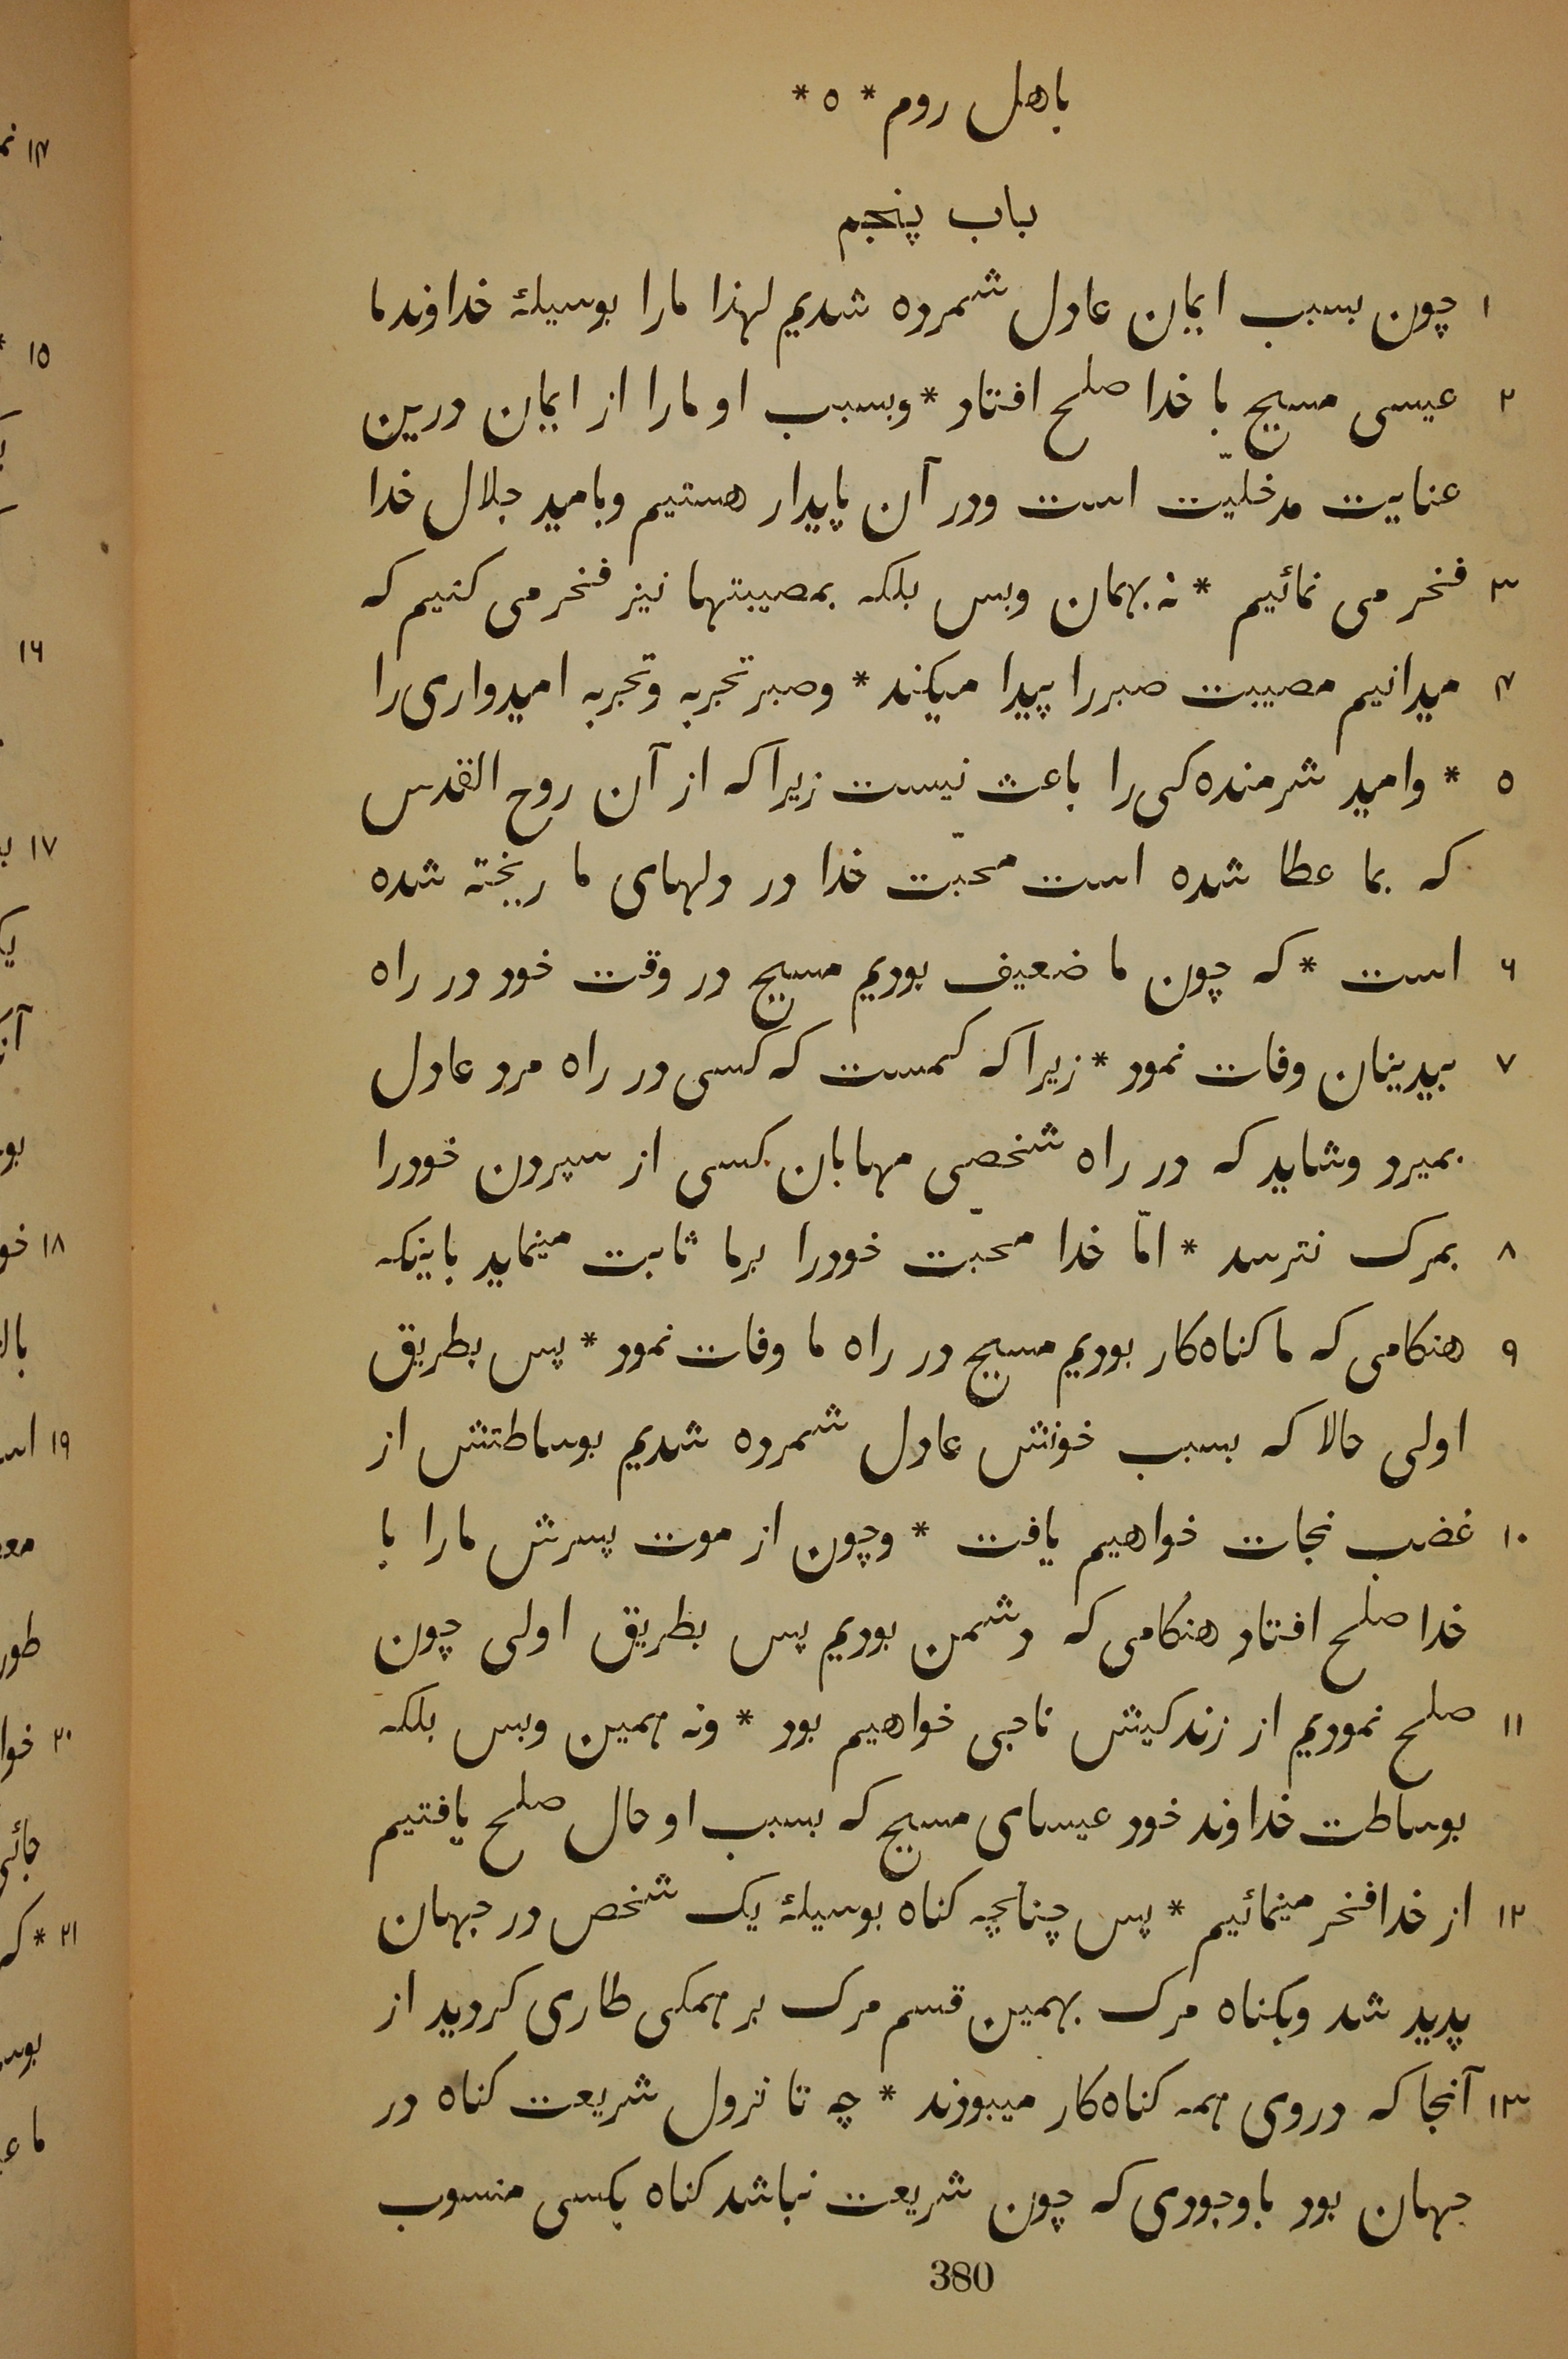 باهل روم * ٥ *
باب پنجم
١ چون بسبب ایمان عادل شمرده شدیم لهذا مارا بوسیلهٔ خداوند ما
٢ عیسی مسیح با خدا صلح افتاد * وبسبب او مارا از ایمان درین
عنایت مدخلیّت است ودر آن پایدار هستیم وبامید جلال خدا
٣ فخر می نمائیم * نه بهمان وبس بلکه بمصیبتها نیز فخر می کنیم که
۴ میدانیم مصیبت صبررا پیدا میکند * وصبر تجربه وتجربه امیدواری را
٥ * وامید شرمنده کی را باعث نیست زیرا که از آن روح القدس
که بما عطا شده است محبّت خدا در دلهای ما ریخته شده
٦ است * که چون ما ضعیف بودیم مسیح در وقت خود در راه
٧ بیدینان وفات نمود * زیرا که کمست که کسی در راه مرد عادل
بمیرد وشاید که در راه شخصی مهابان کسی از سپردن خودرا
٨ بمرک نترسد * امّا خدا محبّت خودرا برما ثابت مینماید باینکه
٩ هنکامی که ما کناه کار بودیم مسیح در راه ما وفات نمود * پس بطریق
اولی حالا که بسبب خونش عادل شمرده شدیم بوساطتش از
١٠ غضب نجات خواهیم یافت * وچون از موت پسرش مارا با
خدا صلح افتاد هنکامی که دشمن بودیم پس بطریق اولی چون
١١ صلح نمودیم از زندکیش ناجی خواهیم بود * ونه همین وبس بلکه
بوساطت خداوند خود عیسای مسیح که بسبب او حال صلح یافتیم
١٢ از خدا فخر مینمائیم * پس چنانچه کناه بوسیلهٔ یک شخص در جهان
پدید شد وبکناه مرک بهمین قسم مرک بر همکی طاری کردید از
١٣ آنجا که دروی همه کناه کار میبودند * چه تا نزول شریعت کناه در
جهان بود باوجودی که چون شریعت نباشد کناه بکسی منسوب
380